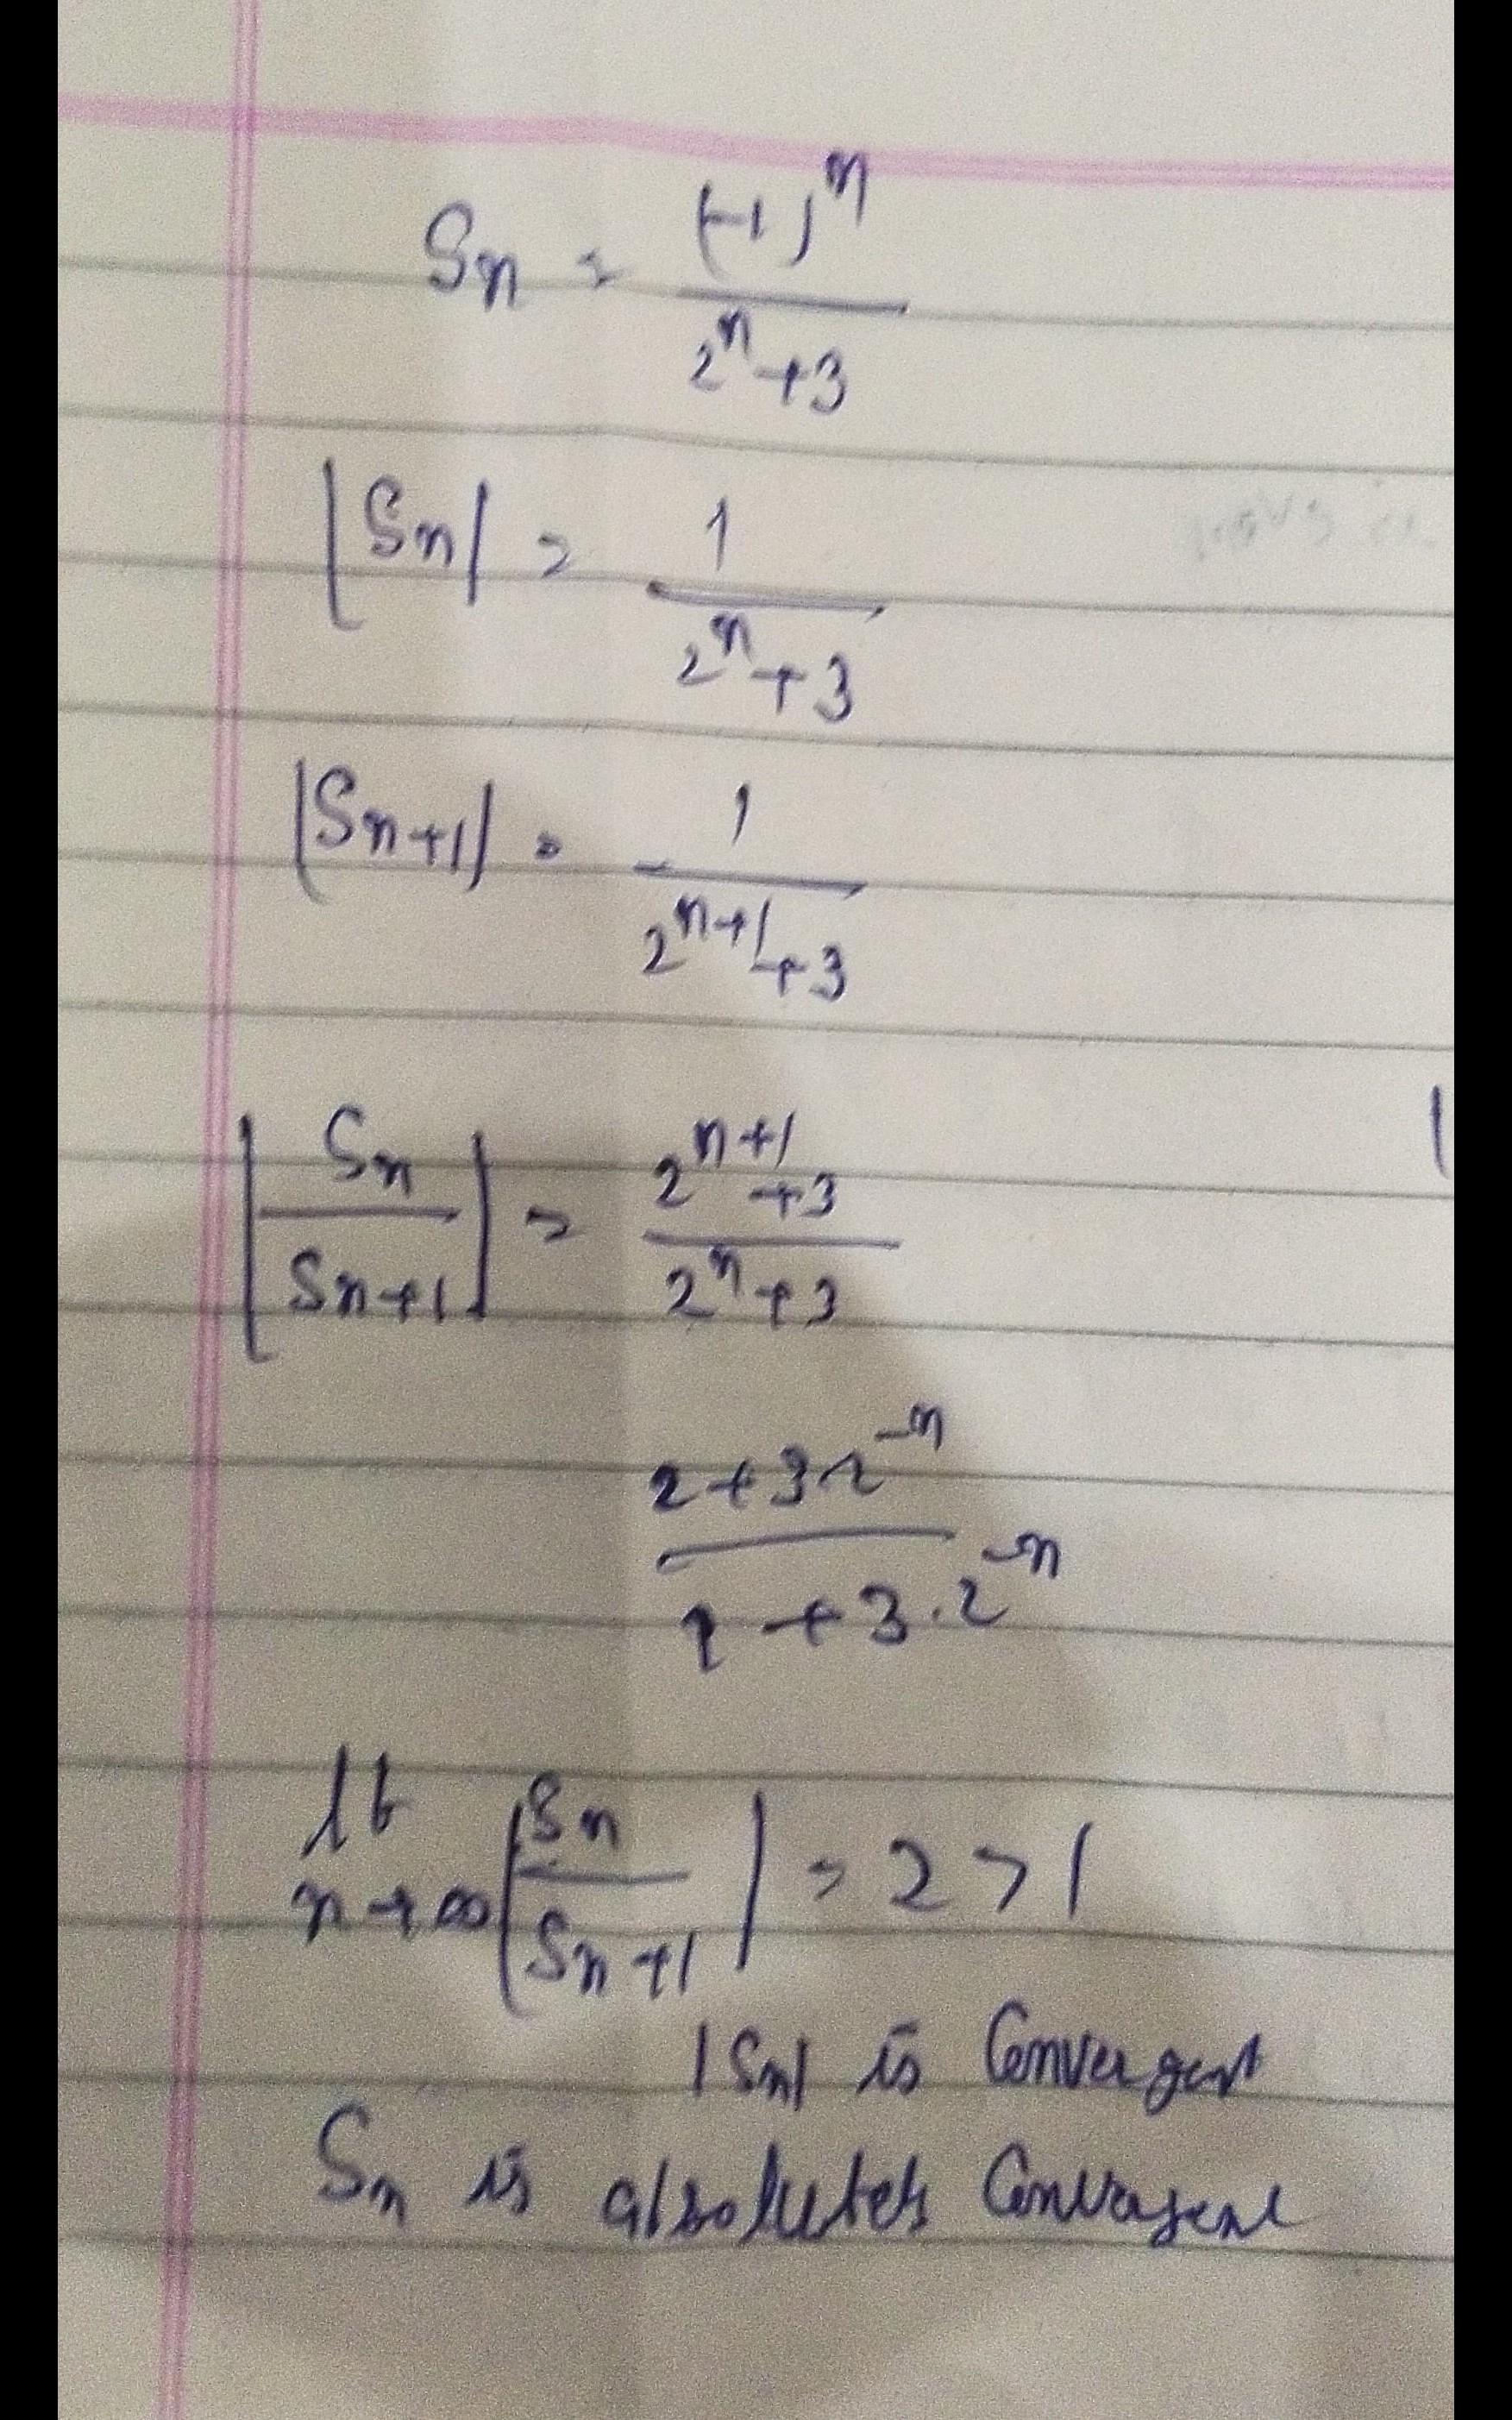 Sn = (-1)^n / 2^n+3
|Sn| = 1 / 2^n+3
|Sn+1| = 1 / 2^n+1 +3
|Sn / Sn+1| = 2^n+1 +3 / 2^n+3
2+3.2^-n / 1+3.2^-n
lt n→∞ |Sn / Sn+1| = 2>1
|Sn| is Convergent
Sn is absolutely Convergent